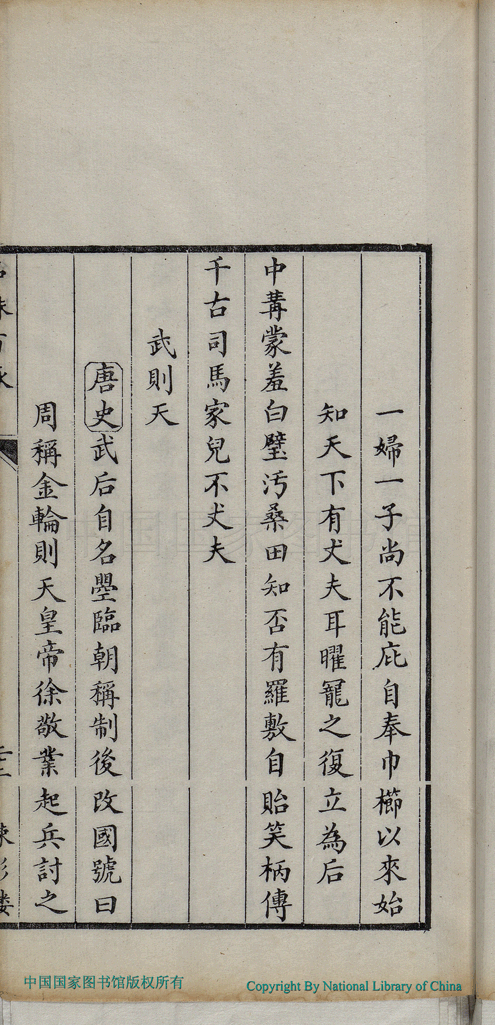 一婦一子尚不能庇自奉巾櫛以來始
知天下有丈夫耳曜寵之復立為后
中冓蒙羞白璧汚桑田知否有羅敷自貽笑柄傳
千古司馬家兒不丈夫
武則天
唐史武后自名曌臨朝稱制後改國號曰
周稱金輪則天皇帝徐敬業起兵討之
中国国家图书馆版权所有
Copyright By National Library of China